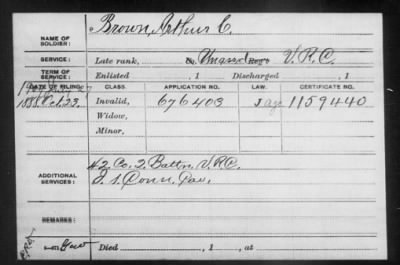 NAME OF SOLDIER: Brown, Arthur C.
SERVICE: Late rank, Co. Unasd Reg't V.R.C.
TERM OF SERVICE: Enlisted , 1 Discharged , 1
DATE OF FILING. CLASS. APPLICATION NO. LAW. CERTIFICATE NO.
27
1888 Oct. 23. Invalid, 676403 J 1159440
Widow,
Minor,
ADDITIONAL SERVICES: 42 Co. 2. Battn. V.R.C.
1 Conn. Cav.
REMARKS:
Died , 1 , at